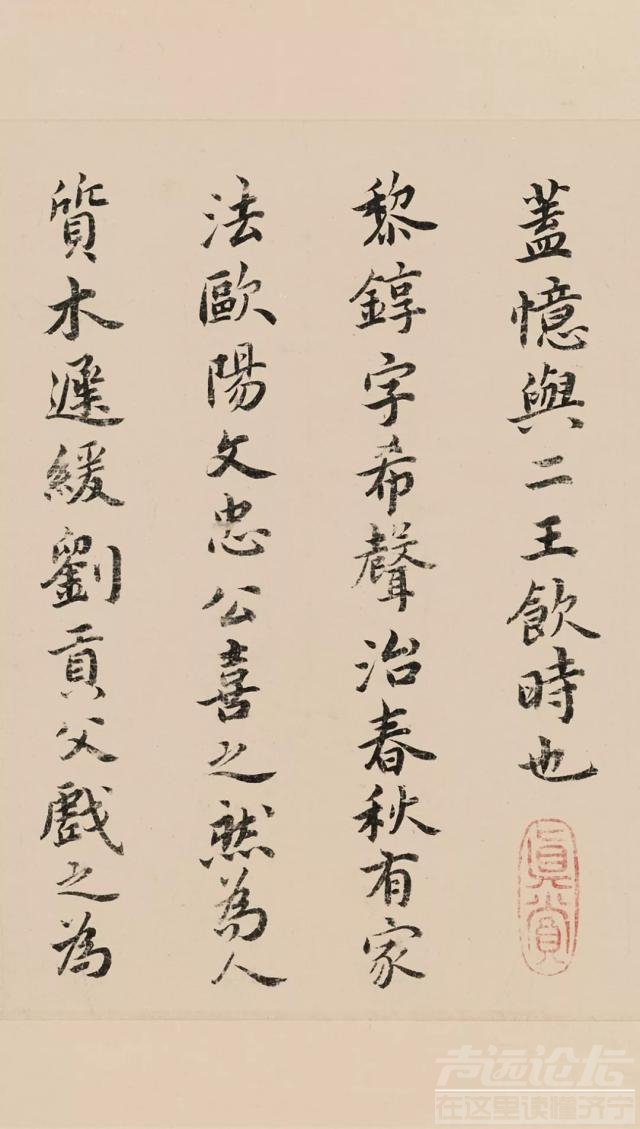 蓋憶與二王飲時也
真賞
黎錞字希聲治春秋有家
法歐陽文忠公喜之然為人
質木遲緩劉貢父戲之為
声远论坛
在这里读懂济宁